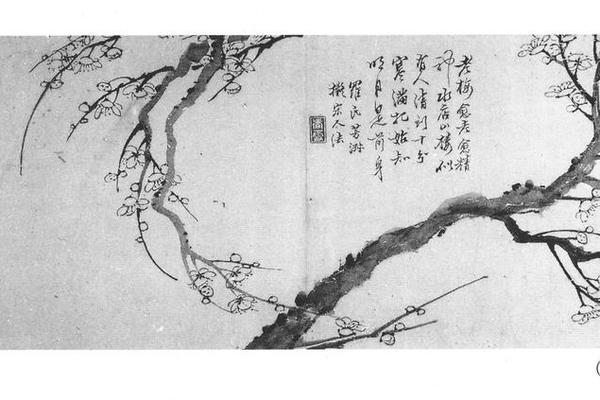 老梅愈老愈精
神水店山樓似
有人清到十分
寒滿把始知
明月是前身
羅氏芳淑
擬宋人法